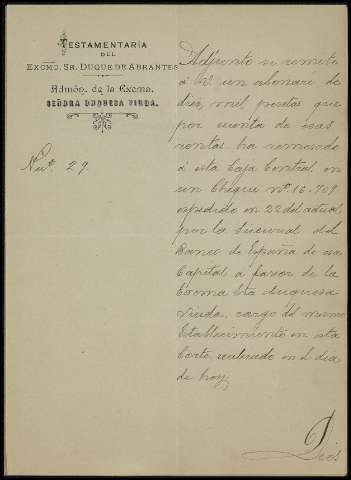 TESTAMENTARÍA
DEL
EXCMO. SR. DUQUE DE ABRANTES
Admón. de la Excma.
SEÑORA DUQUESA VIUDA.
Num. 29.
Adjunto se remite
á V. un abonaré de
diez mil pesetas que
por cuenta de esas
rentas ha remesado
á esta Caja Central en
un Cheque nº. 16.709
expedido en 22 del actual
por la Sucursal del
Banco de España de esa
Capital a favor de la
Excma Sra duquesa
viuda, cargo del mismo
Establecimiento en esta
Corte, realizado en el dia
de hoy,
Dios